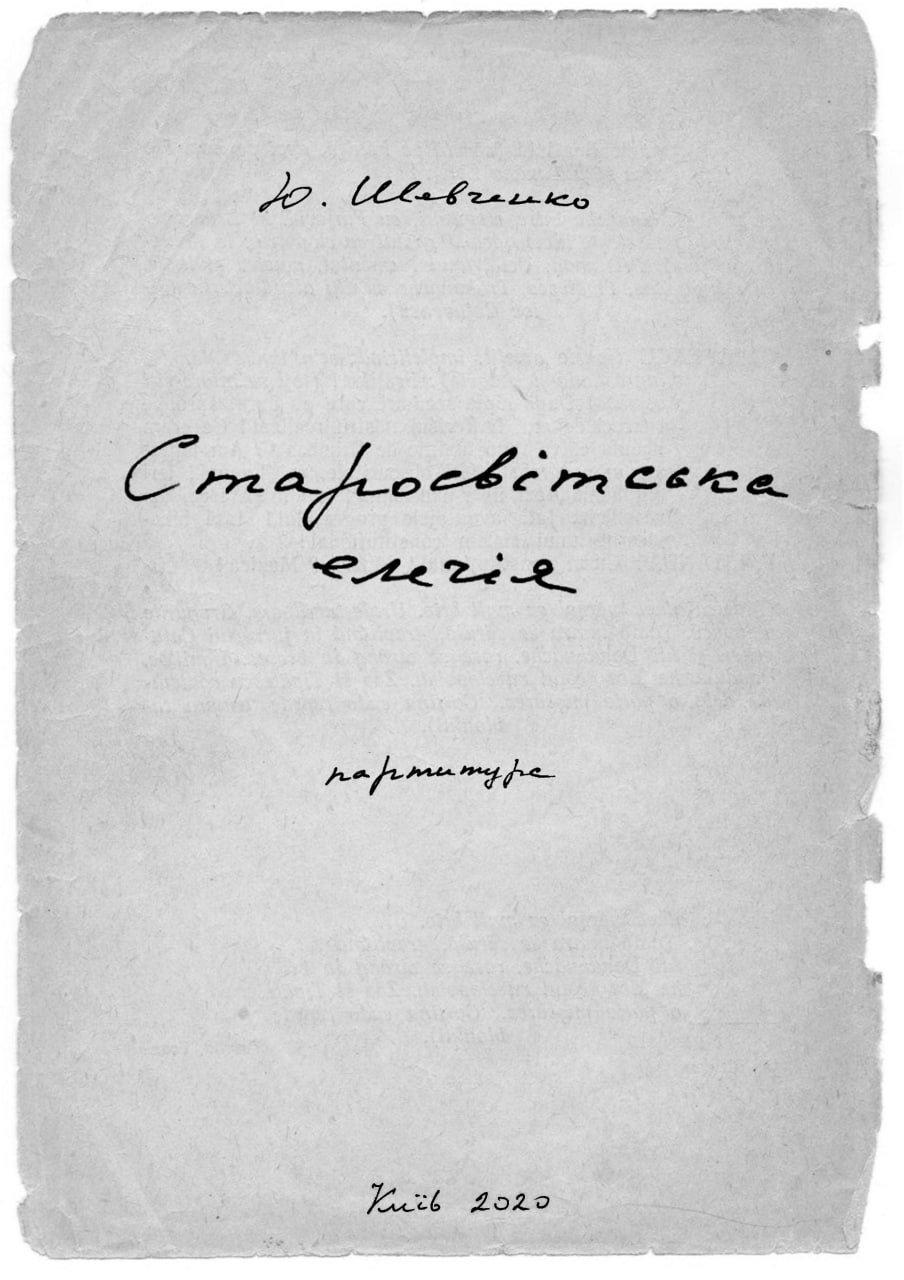 Ю. Шевченко
Старосвітська
елегія
партитура
Київ 2020